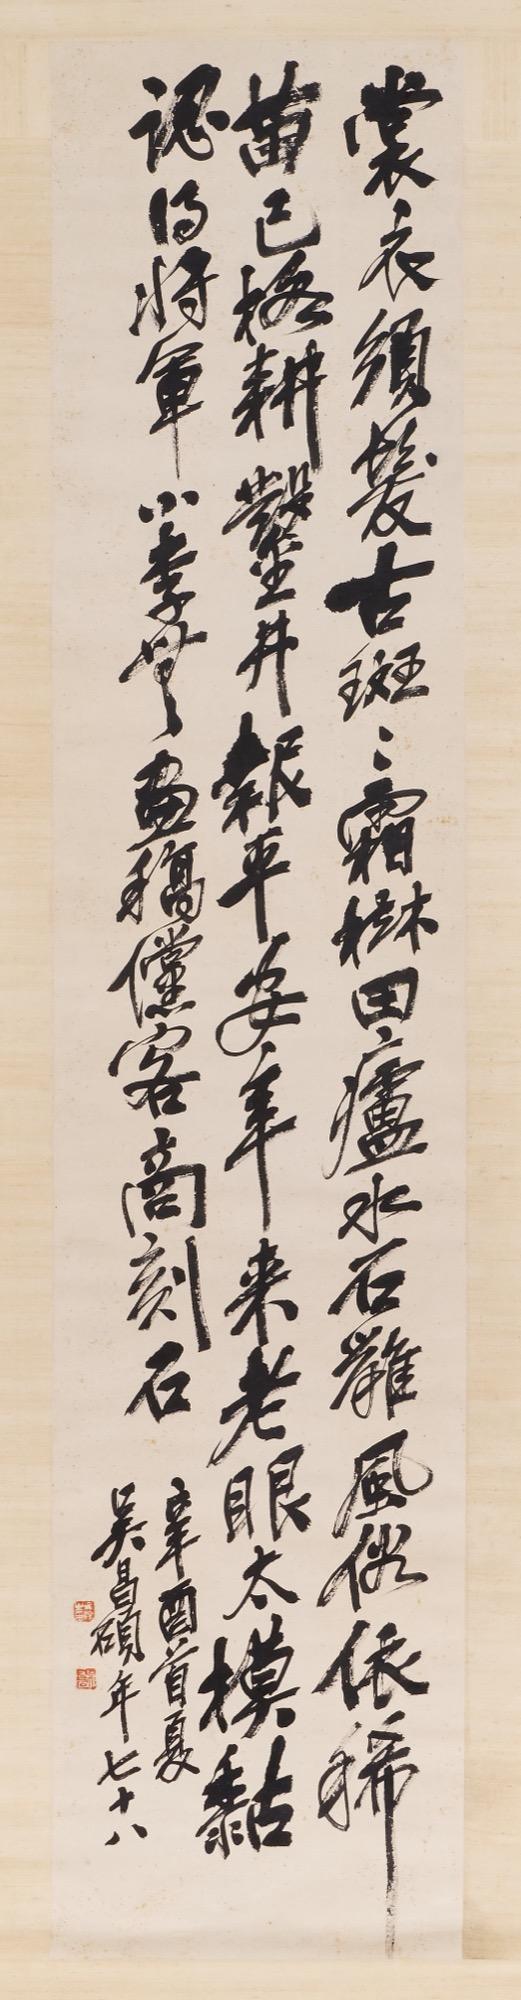 裳衣須髮古斑〻霜樹田廬水石難風俗依稀
苗已格耕鑿井報平安年来老眼太模黏
認得將軍小李無畫稿儻容商刻石
辛酉首夏
吳昌碩年七十八